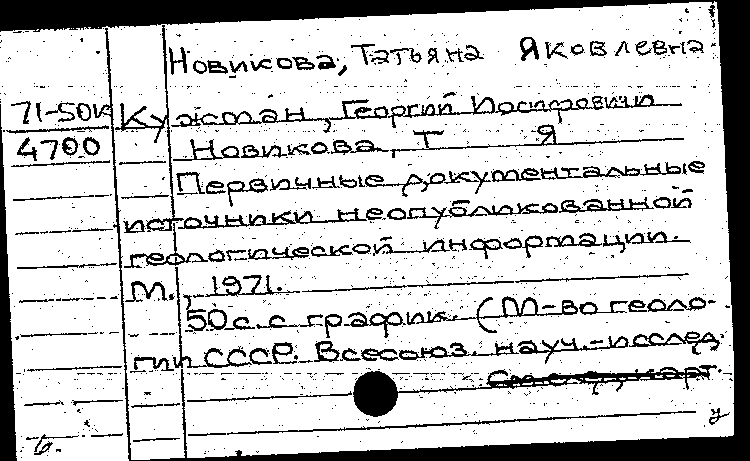 Новикова, Татьяна Яковлевна
71-50к
4700
Кужман, Георгий Иосифович
Новикова, Т Я
Первичные документальные
источники неопубликованной
геологической информации.
М., 1971.
50 с. с график. (М-во геоло-
гии СССР. Всесоюз. науч.-исслед.
См след карт.
6. у